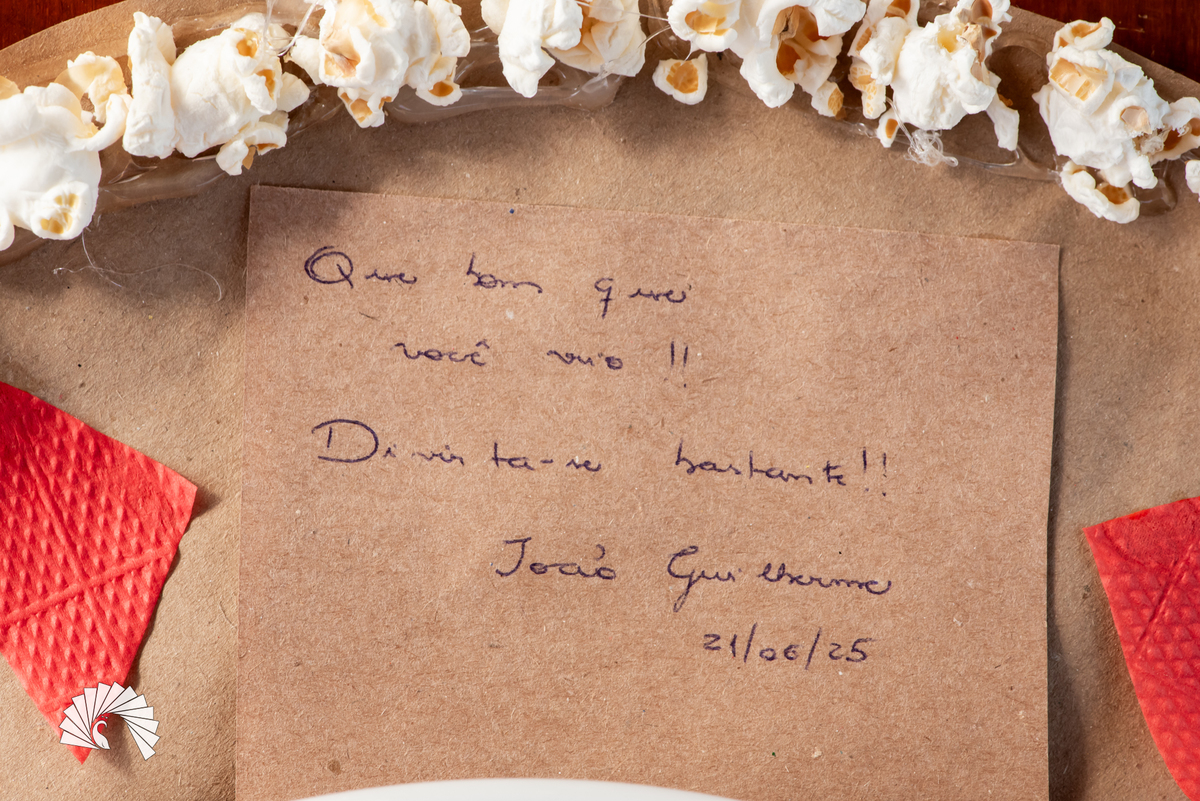 Que bom que
você veio !!
Divirta-se bastante!!
João Guilherme
21/06/25